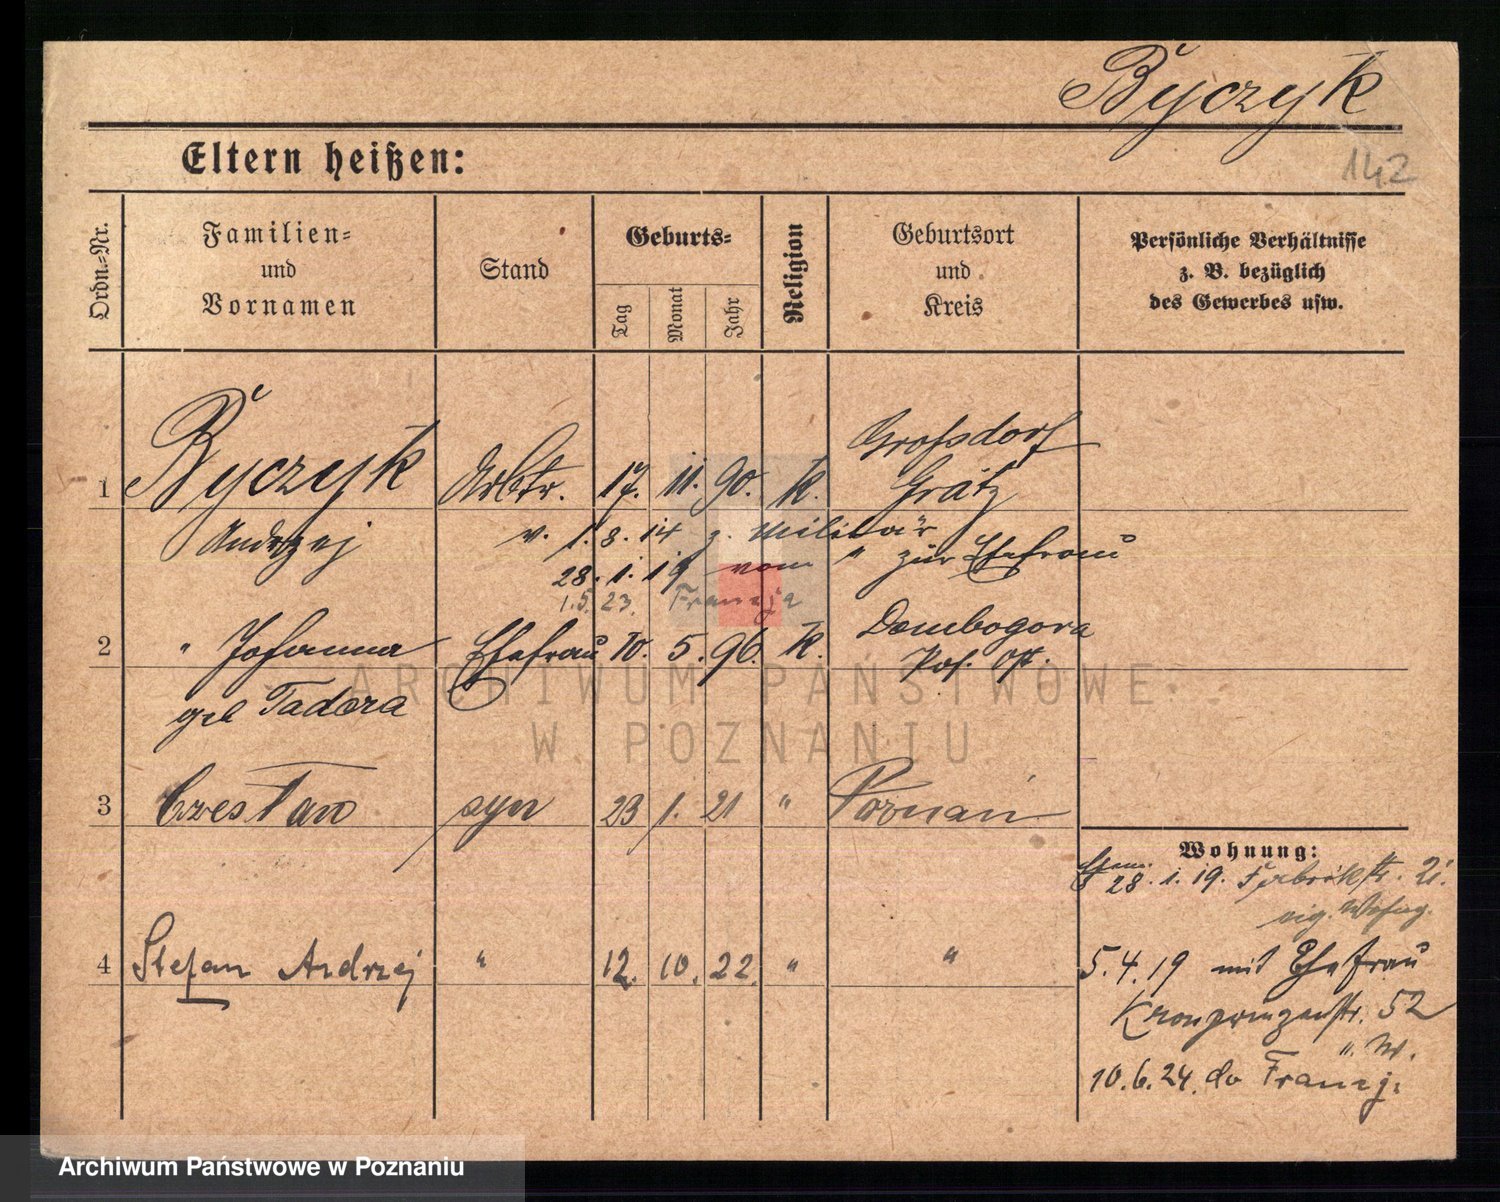 Byczyk
142
Eltern heißen:
Ordn.-Nr.
Familien-
und
Vornamen
Stand
Geburts-
Tag
Monat
Jahr
Religion
Geburtsort
und
Kreis
Persönliche Verhältnisse
z. B. bezüglich
des Gewerbes usw.
Grofsdorf
1 Byczyk Arbtr. 17. 11. 90. k. Grätz
Andrzej v. 1. 8. 14 z. Militär
28. 1. 19 vom " zur Ehefrau
1.5. 23. Francja
Dombogora
2 " Johanna Ehefrau 10. 5. 96. k. Pos. Ost.
geb Tadora
3 Czesław syn 23 1. 21 " Poznań
Wohnung:
28. 1. 19. Fabrikstr. 21.
eig. Wohng.
4 Stefan Andrzej " 12. 10. 22. " "
5. 4. 19 mit Ehefrau
Kronprinzenstr. 52
". W.
10. 6. 24. do Francj.
ARCHIWUM PAŃSTWOWE
W POZNANIU
Archiwum Państwowe w Poznaniu